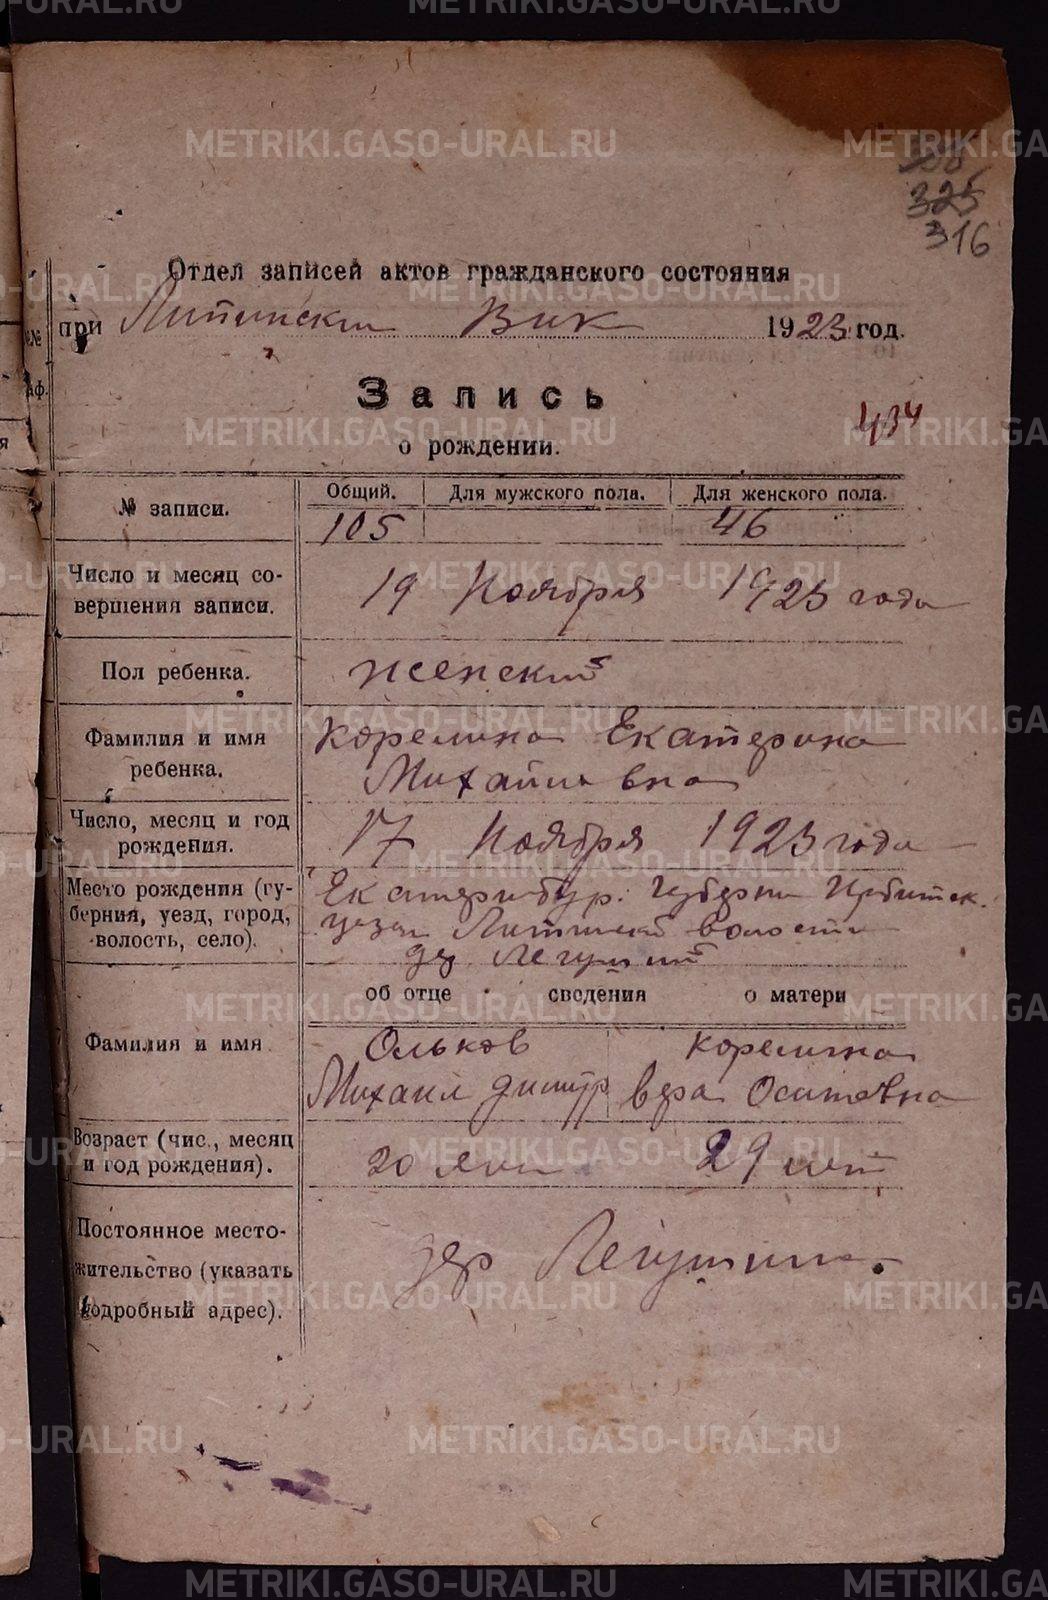 METRIKI.GASO-URAL.RU
325
316
Отдел записей актов гражданского состояния
при Липински Вик 1923 год.
Запись
434
о рождении.
№ записи.
Общий. Для мужского пола. Для женского пола.
105 46
Число и месяц со-
вершения записи.
19 Ноября 1923 года
Пол ребенка.
женский
Фамилия и имя
ребенка.
Корелина Екатерина
Михайловна
Число, месяц и год
рождения.
17 Ноября 1923 года
Место рождения (гу-
берния, уезд, город,
волость, село).
Екатеринбур. Губерни Ирбитск.
уезда волости
Легушин
об отце сведения о матери
Фамилия и имя
Ольков Корелина
Михаил Димитр Вера Осиповна
Возраст (чис., месяц
и год рождения).
20 лет 29 лет
Постоянное место-
жительство (указать
подробный адрес).
дер Легушина